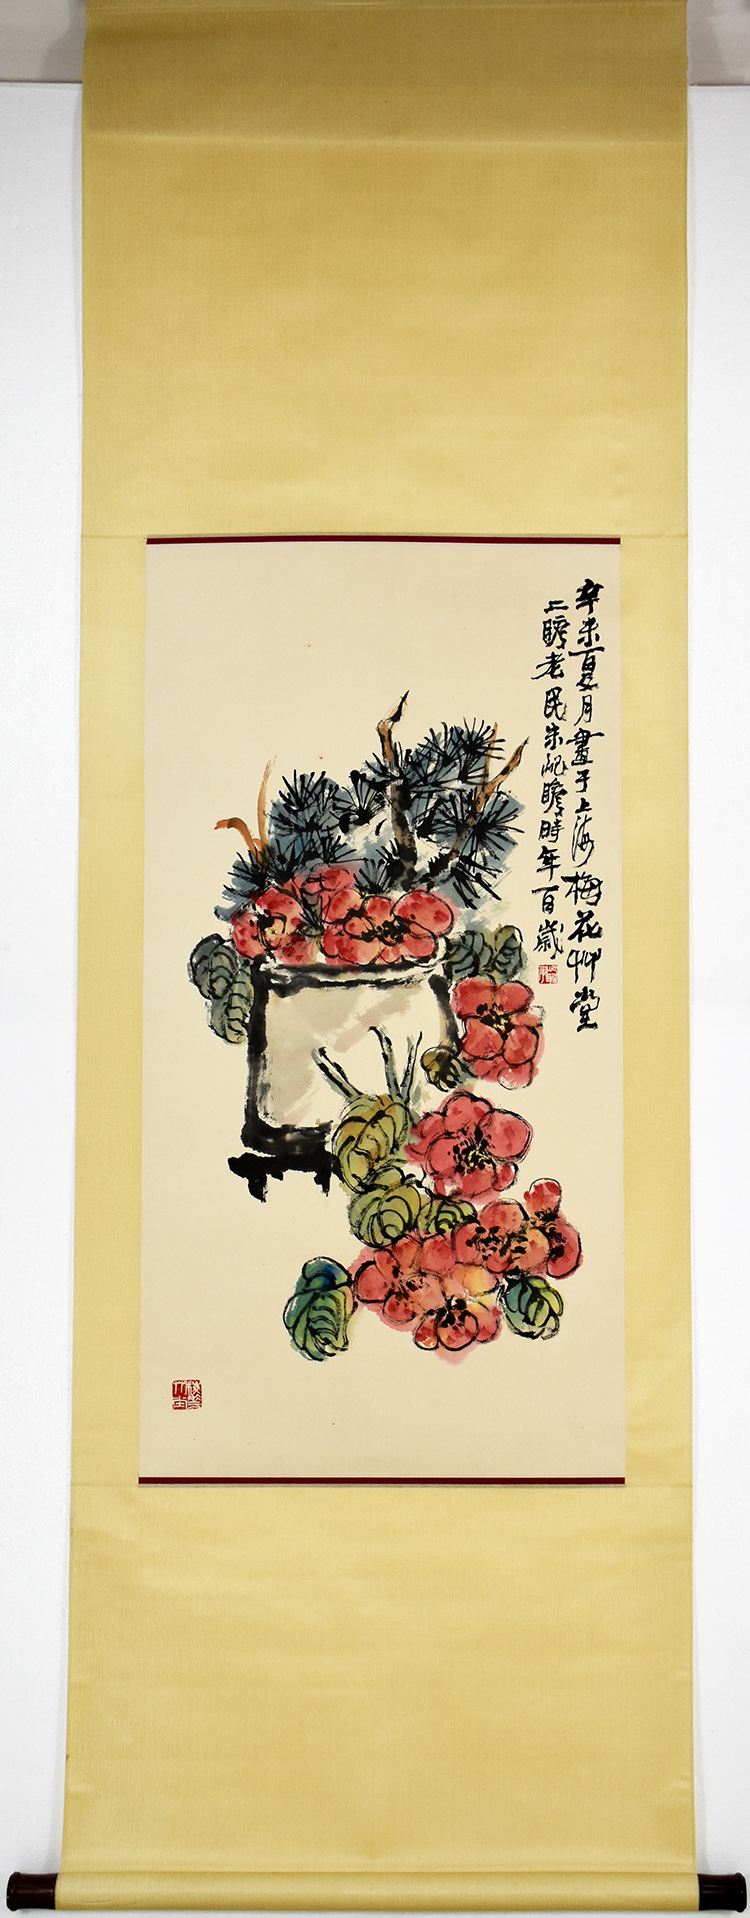 辛未夏月畫于上海梅花艸堂
二瞻老民朱屺瞻時年百歲